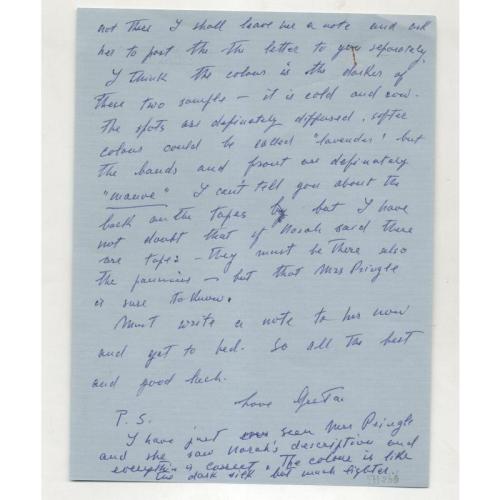 not there I shall leave her a note and ask
her to post the the letter to you separately.
I think the colour is the darker of
these two samples – it is cold and now.
The spots are definately diffused, softer
colour could be called "lavender' but
the bands and front are definately
"mauve" I can't tell you about the
back on the tapes but I have
not doubt that if Norah said there
are tapes – they must be there also
the – but that Mrs Pringle
is sure to know.
Must write a note to her now
and get to bed. So all the best
and good luck.
Love Greta
P.S.
I have just seen Mrs Pringle
and she saw Norah's description and
everything is correct. The colour is like
the dark silk but much lighter.